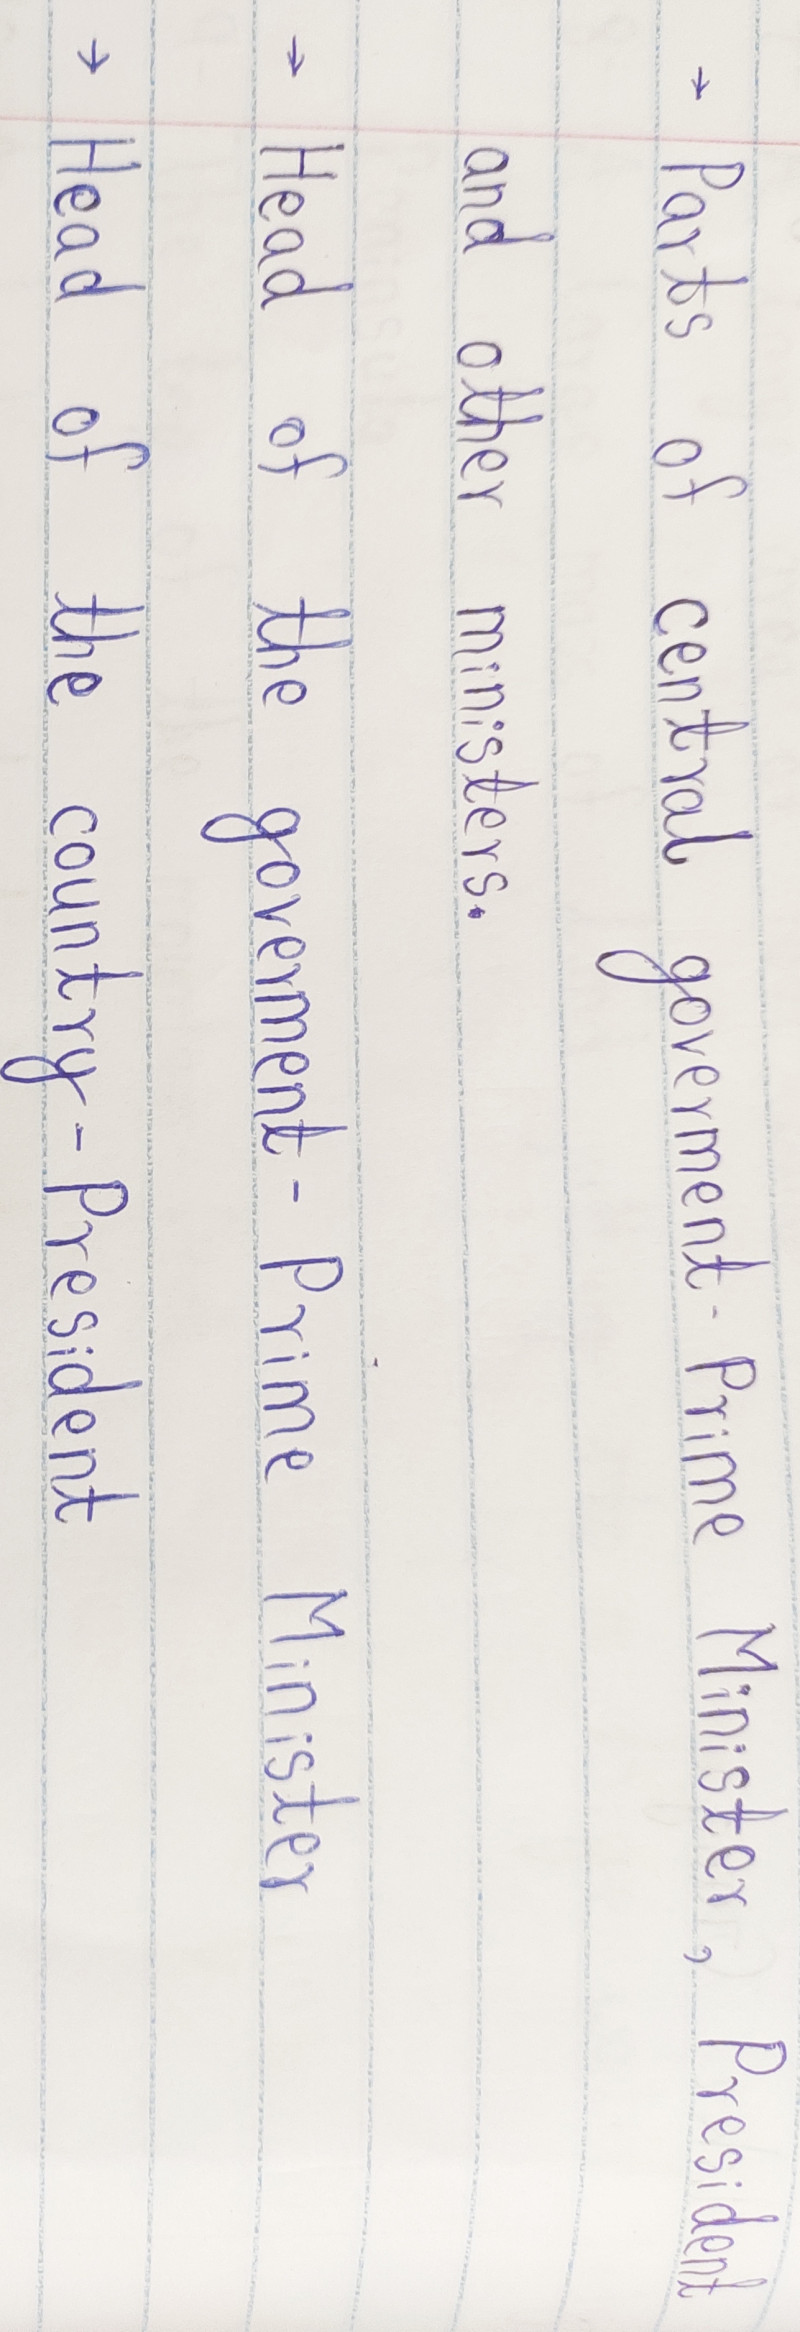 → Parts of central goverment - Prime Minister, President
and other ministers.
→ Head of the goverment - Prime Minister
→ Head of the country - President